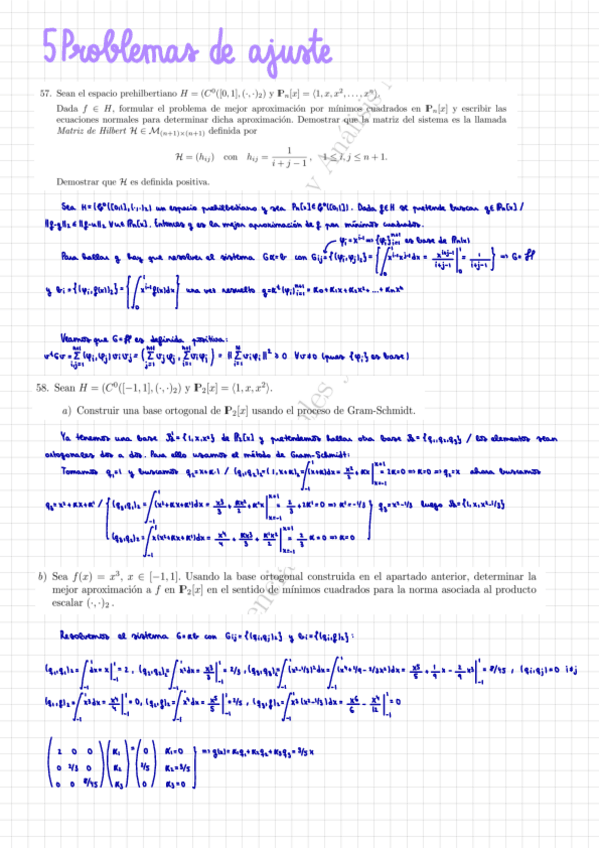 5 Problemas de ajuste
57. Sean el espacio prehilbertiano H = (C⁰([0, 1], (·, ·)₂) y Pₙ[x] = ⟨1, x, x², . . . , xⁿ⟩.
Dada f ∈ H, formular el problema de mejor aproximación por mínimos cuadrados en Pₙ[x] y escribir las
ecuaciones normales para determinar dicha aproximación. Demostrar que la matriz del sistema es la llamada
Matriz de Hilbert ℋ ∈ M₍ₙ₊₁₎ₓ₍ₙ₊₁₎ definida por
ℋ = (hᵢⱼ) con hᵢⱼ = 1/(i + j − 1), 1 ≤ i, j ≤ n + 1.
Demostrar que ℋ es definida positiva.
Sea H=(C⁰([0,1],(·,·)₂) un espacio prehilbertiano y sea Pₙ[x]⊂C⁰([0,1]). Dada f∈H se pretende buscar g∈Pₙ[x] /
‖f-g‖₂ ≤ ‖f-u‖₂ ∀u∈Pₙ[x]. Entonces g es la mejor aproximación de f por mínimos cuadrados.
φᵢ=xⁱ⁻¹ ⇒ {φᵢ}ⁿ⁺¹ᵢ₌₁ es base de Pₙ(x)
Para hallar g hay que resolver el sistema Gα=b con Gᵢⱼ={(φᵢ,φⱼ)₂}={∫₀¹ xⁱ⁺ʲ⁻²dx = xⁱ⁺ʲ⁻¹/(i+j-1) |₀¹ = 1/(i+j-1)} ⇒ G=ℋ
y bᵢ={(φᵢ,f(x))₂}={∫₀¹ xⁱ⁻¹f(x)dx} una vez resuelto g=αᵗ(φᵢ)ⁿ⁺¹ᵢ₌₁ = α₀+α₁x+α₂x²+...+αₙxⁿ
Veamos que G=ℋ es definida positiva:
vᵗGv=Σ(φᵢ,φⱼ)vᵢvⱼ=(Σvⱼφⱼ,Σvᵢφᵢ) = ‖Σvᵢφᵢ‖²>0 ∀v≠0 (pues {φᵢ} es base)
58. Sean H = (C⁰([−1, 1], (·, ·)₂) y P₂[x] = ⟨1, x, x²⟩.
a) Construir una base ortogonal de P₂[x] usando el proceso de Gram-Schmidt.
Ya tenemos una base B'={1,x,x²} de P₂[x] y pretendemos hallar otra base B={q₁,q₂,q₃} / los elementos sean
ortogonales dos a dos. Para ello usamos el método de Gram-Schmidt:
Tomamos q₁=1 y buscamos q₂=x+α·1 / (q₁,q₂)₂=(1,x+α)₂=∫₋₁¹(x+α)dx= x²/2+αx |ₓ₌₋₁ˣ⁼¹ = 2α=0 ⇒ α=0 ⇒ q₂=x ahora buscamos
q₃=x²+αx+α' / { (q₃,q₁)₂=∫₋₁¹(x²+αx+α')dx= x³/3+αx²/2+α'x |ₓ₌₋₁ˣ⁼¹ = 2/3+2α'=0 ⇒ α'=-1/3 } q₃=x²-1/3 luego B={1,x,x²-1/3}
(q₃,q₂)₂=∫₋₁¹x(x²+αx+α')dx= x⁴/4+αx³/3+α'x²/2 |ₓ₌₋₁ˣ⁼¹ = 2/3 α=0 ⇒ α=0
b) Sea f(x) = x³, x ∈ [−1, 1]. Usando la base ortogonal construida en el apartado anterior, determinar la
mejor aproximación a f en P₂[x] en el sentido de mínimos cuadrados para la norma asociada al producto
escalar (·, ·)₂.
Resolvemos el sistema Gα=b con Gᵢⱼ={(qᵢ,qⱼ)₂} y bᵢ={(qᵢ,f)₂}:
(q₁,q₁)₂=∫₋₁¹dx=x|₋₁¹=2, (q₂,q₂)₂=∫₋₁¹x²dx= x³/3|₋₁¹=2/3, (q₃,q₃)₂=∫₋₁¹(x²-1/3)²dx=∫₋₁¹(x⁴+1/9-2/3x²)dx= x⁵/5+1/9x-2/9x³|₋₁¹=8/45, (qᵢ,qⱼ)=0 i≠j
(q₁,f)₂=∫₋₁¹x³dx= x⁴/4|₋₁¹=0, (q₂,f)₂=∫₋₁¹x⁴dx= x⁵/5|₋₁¹=2/5, (q₃,f)₂=∫₋₁¹x³(x²-1/3)dx= x⁶/6-x⁴/12|₋₁¹=0
(2 0 0) (α₁) = (0) α₁=0 ⇒ g(x)=α₁q₁+α₂q₂+α₃q₃=3/5x
(0 2/3 0) (α₂) (2/5) α₂=3/5
(0 0 8/45) (α₃) (0) α₃=0